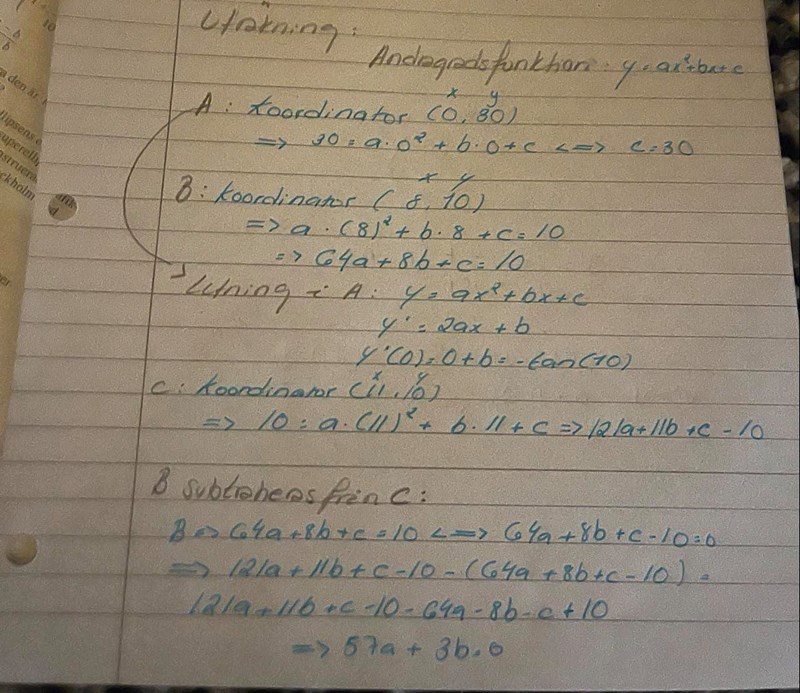 10
b
den är
Uträkning:
Andragradsfunktion: y=ax²+bx+c
x y
A: Koordinator (0, 30)
=> 30=a·0²+b·0+c <=> c=30
x y
B: Koordinator (8, 10)
=> a·(8)²+b·8+c=10
=> 64a+8b+c=10
Lutning i A: y=ax²+bx+c
y'=2ax+b
y'(0)=0+b=-tan(10)
x y
C: Koordinator (11, 10)
=> 10=a·(11)²+b·11+c=>121a+11b+c-10
B subtraheras från C:
B=>64a+8b+c=10 <=> 64a+8b+c-10=0
=> 121a+11b+c-10-(64a+8b+c-10)=
121a+11b+c-10-64a-8b-c+10
=> 57a+3b=0